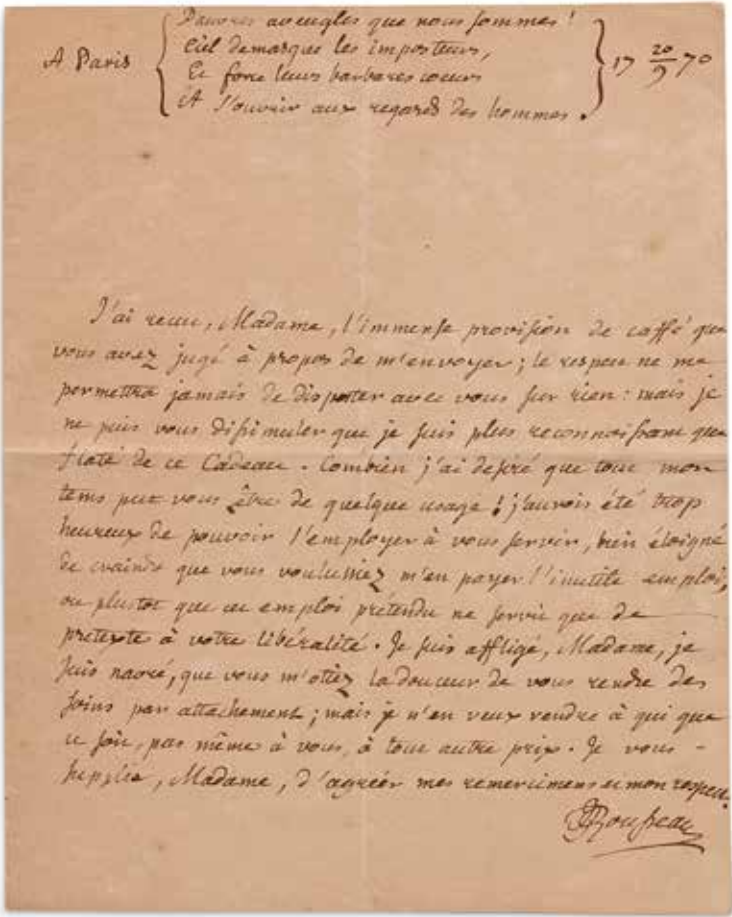 Pauvres aveugles que nous sommes !
Ciel demasque les imposteurs,
A Paris Et force leurs barbares cœurs 17 20/9 70
A s'ouvrir aux regards des hommes .
J'ai receu, Madame, l'immense provision de caffé que
vous avez jugé à propos de m'envoyer ; le respect ne me
permettra jamais de disputer avec vous sur rien : mais je
ne puis vous dissimuler que je suis plus reconnoissant que
flaté de ce Cadeau . Combien j'ai desiré que tout mon
tems put vous être de quelque usage ! j'aurois été trop
heureux de pouvoir l'employer à vous servir, bien éloigné
de craindre que vous voulussiez m'en payer l'inutile emploi,
ou plustot que cet emploi prétendu ne servit que de
pretexte à votre libéralité . Je suis affligé, Madame, je
suis navré, que vous m'ôtiez la douceur de vous rendre des
soins par attachement ; mais je n'en veux rendre à qui que
ce soit, pas même à vous, à tout autre prix . Je vous -
supplie, Madame, d'agréer mes remercimens et mon respect.
JJRousseau